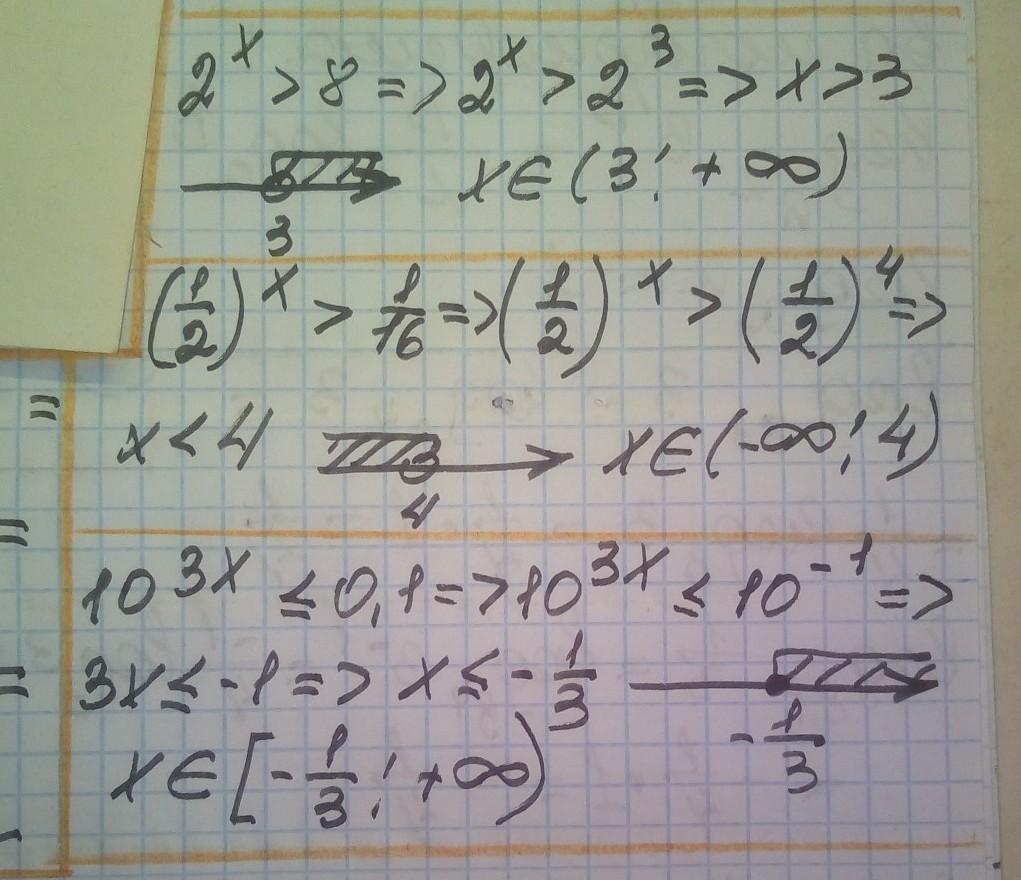 2^x > 8 => 2^x > 2^3 => x > 3
3
x∈(3; +∞)
(1/2)^x > 1/16 => (1/2)^x > (1/2)^4 =>
x < 4
4
x∈(-∞; 4)
10^3x ≤ 0,1 => 10^3x ≤ 10^-1 =>
3x ≤ -1 => x ≤ -1/3
-1/3
x∈[-1/3; +∞)
=
=
=